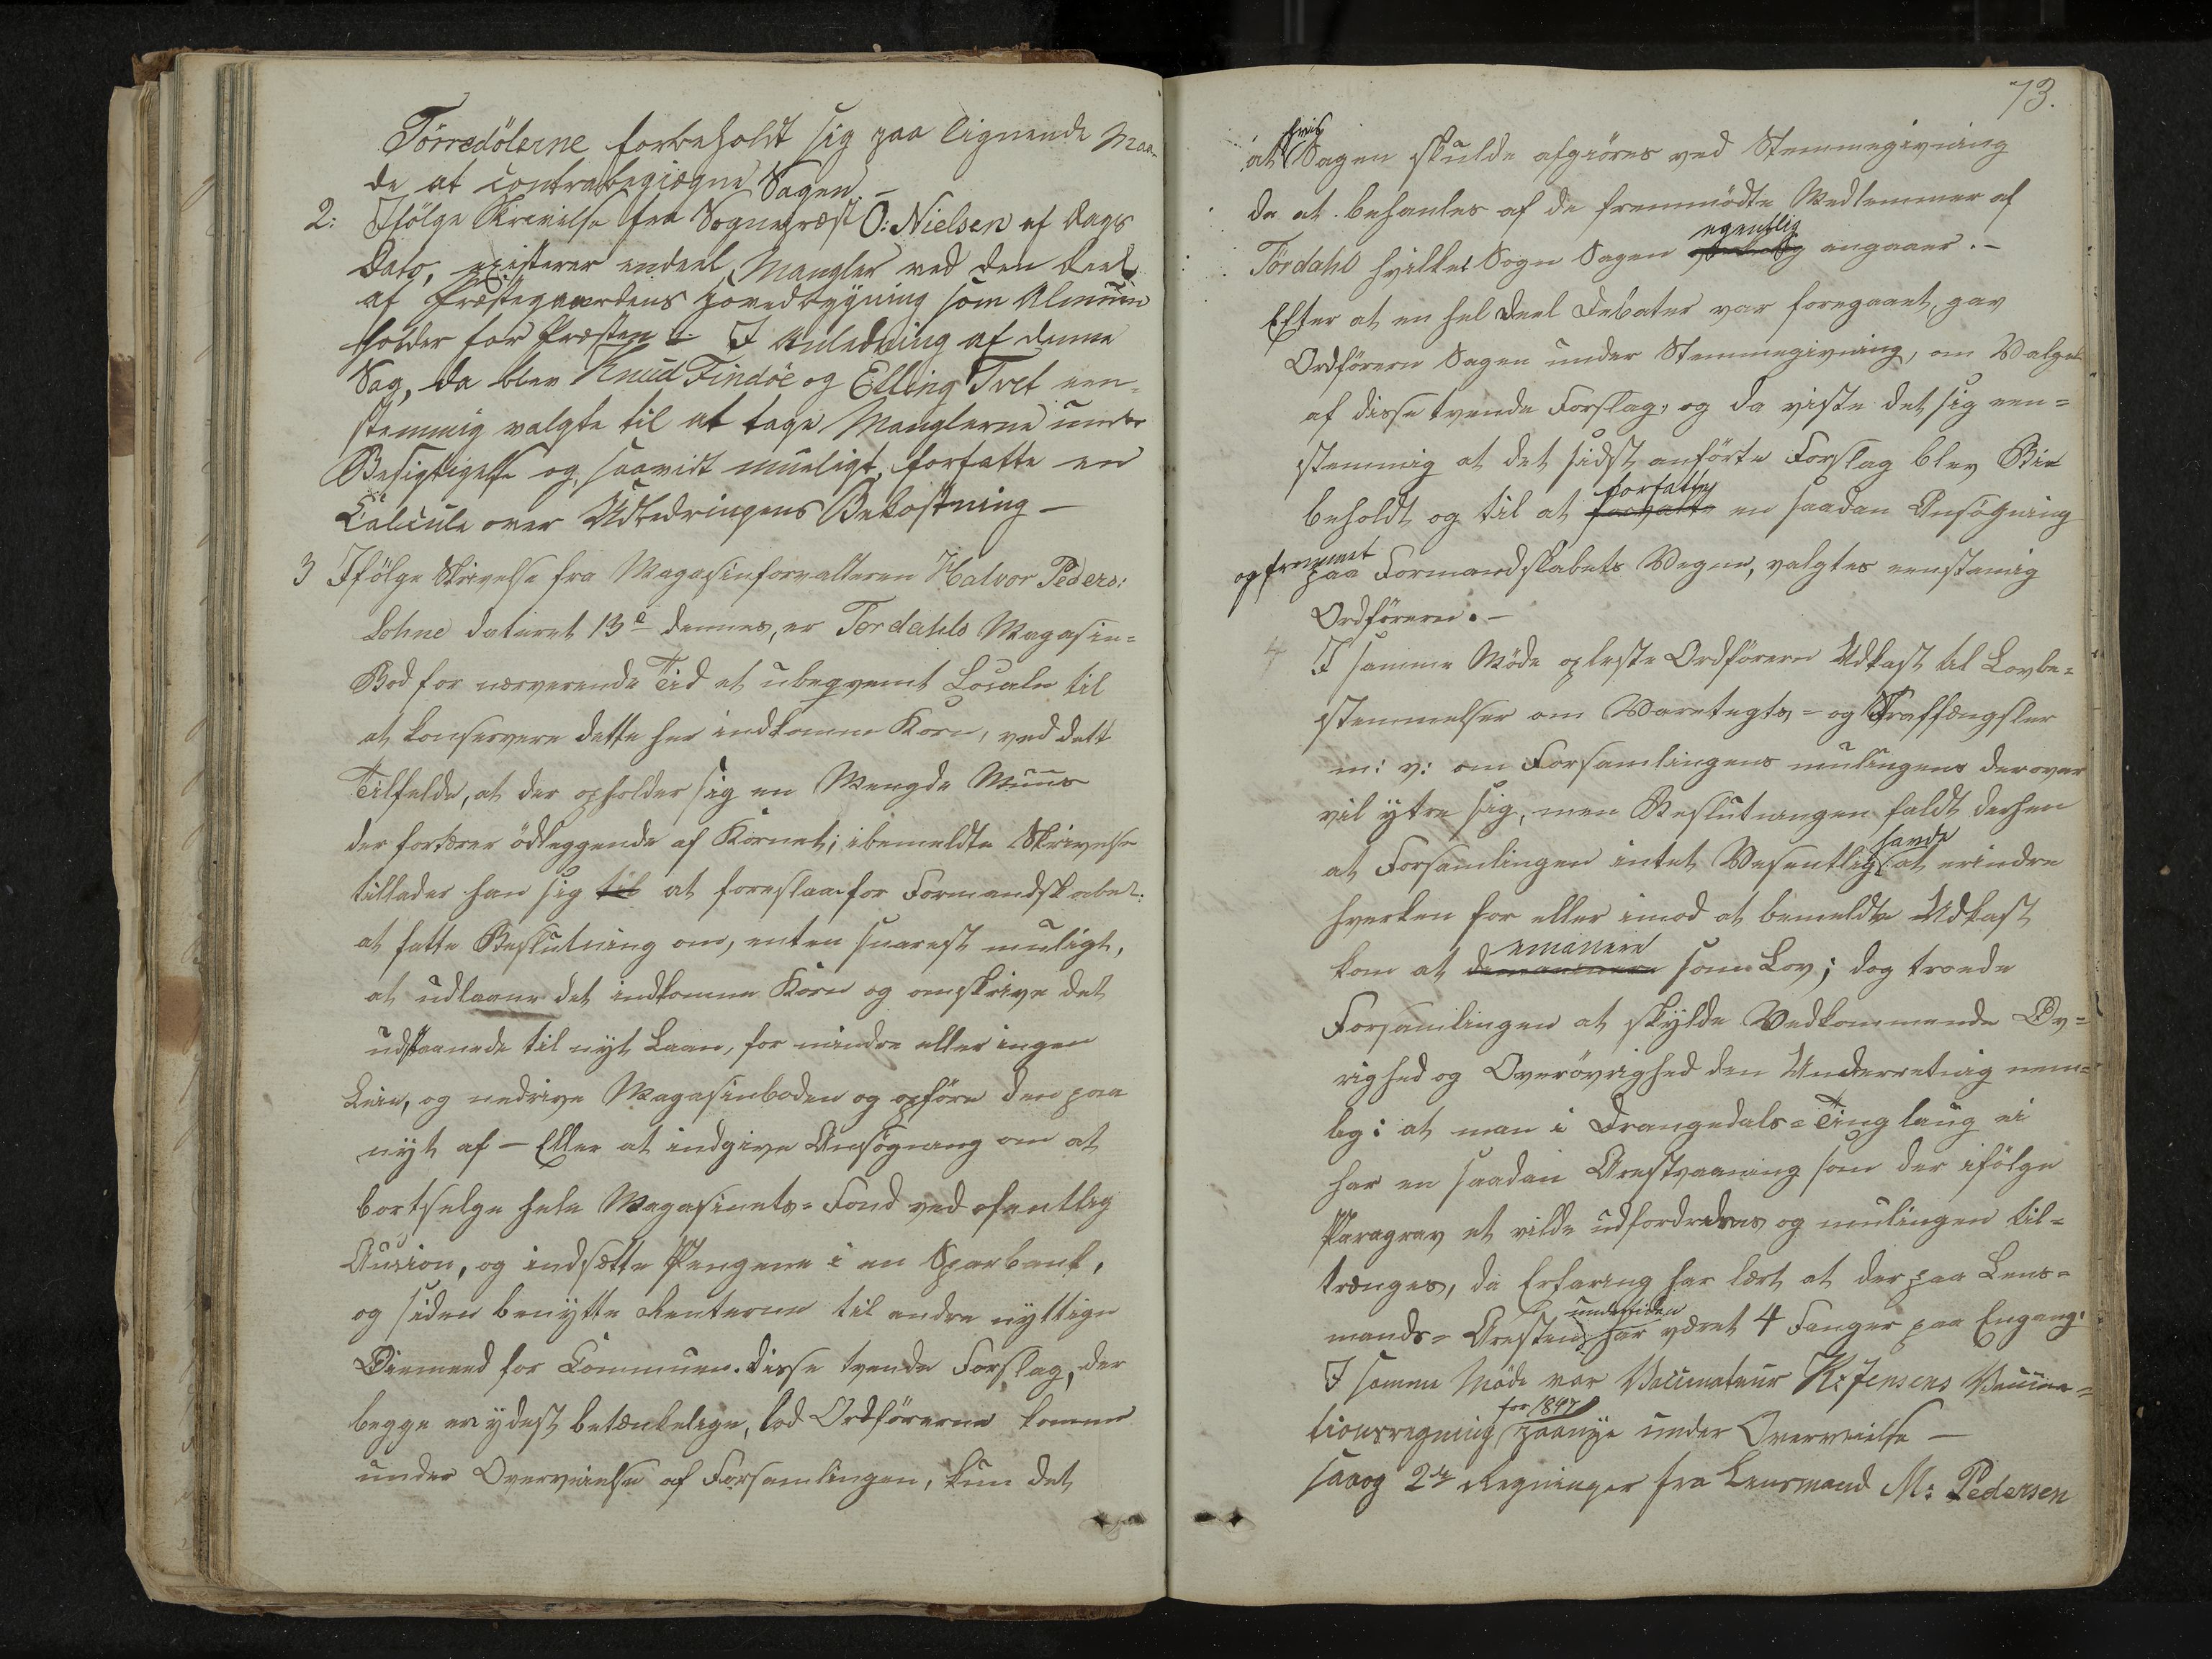 Törredölerne forbeholdt sig paa lignende Maa-
de at contrabegiægne Sagen. –
2: Ifölge Skrivelse fra Sognepræst O: Nielsen af Dags
Dato, existerer endeel Mangler ved den Deel
af Præstegaardens Hovedbygning som Almuen
holder for Præsten. I Anledning af denne
Sag, da blev Knud Findöe og Elling Tvet een-
stemmig valgte til at tage Manglerne under
Besigtigelse og, saavidt mueligt, forfatte en
Calcule over Udbedringens Bekostning –
3 Ifölge Skrivelse fra Magasinforvalteren Halvor Peders:
Lohne dateret 13e dennes, er Tördahls Magasin=
Bod for nærverende Tid et ubeqvemt Locale til
at konservere dette her indkomne Korn, ved dett
Tilfelde, at der opholder sig en Mengde Muus
der fortærer ödleggende af Kornet; ibemeldte Skrivelse
tillader han sig til at foreslaa for Formandskabet.
at fatte Beslutning om, enten snarest muligt,
at udlaane det indkomne Korn og omskrive det
udstaaende til nyt Laan, for mindre eller ingen
Leie, og nedrive Magasinboden og opföre den paa
nyt af – Eller at indgive Ansögning om at
bortselge hele Magasinets= Fond ved ofentlig
Auxion, og indsætte Pengene i en Sparbank,
og siden benytte Renterne til andre nyttige
Öiemeed for Communen. Disse tvende Forslag, der
begge er ydest betænkelige, lod Ordförerne komme
under Overveielse af Forsamlingen, kun det
73.
at hvis Sagen skulde afgiöres ved Stemmegivning
da at behanles af de fremmödte Medlemmer af
Tördahl hvilket Sogn Sagen egentlig angaaer. –
Efter at en hel Deel Debater var foregaaet, gav
Ordföreren Sagen under Stemmegivning, om Valget
af disse tvende Forslag; og da viste det sig een=
stemmig at det sidst anförte Forslag blev Bie
beholdt og til at forvalte forfatte en saadan Ansögning
og fremmet paa Formandskabets Vegne, valgtes eenstemig
Ordföreren. –
4 I samme Möde opleste Ordföreren Udkast til Lovbe=
stemmelser om Varetegts= og Straffængsler
m: v: om Forsamlingens mulingens derover
vil ytre sig, men Beslutningen faldt derhen
at Forsamlingen intet Vesentlig havde at erindre
hverken for eller imod at bemeldte Udkast
kom at emanere som Lov; dog troede
Forsamlingen at skylde Vedkommende Öv=
righed og Overövrighed den Underretnig nem=
lig: at man i Drangedals= Tinglaug ei
har en saadan Arestvaaning som der ifölge
Paragrav et vilde udfordredes og mulingen til=
trænges, da Erfaring har lært at der paa Lens=
mands= Aresten undertiden har været 4 Fanger paa Engang.
I samme Möde var Vaccinateur K: Jensens Vaccina=
tionsregning for 1847 paanye under Overveielse –
saaog 2de Regninger fra Lensmand M: Pedersen